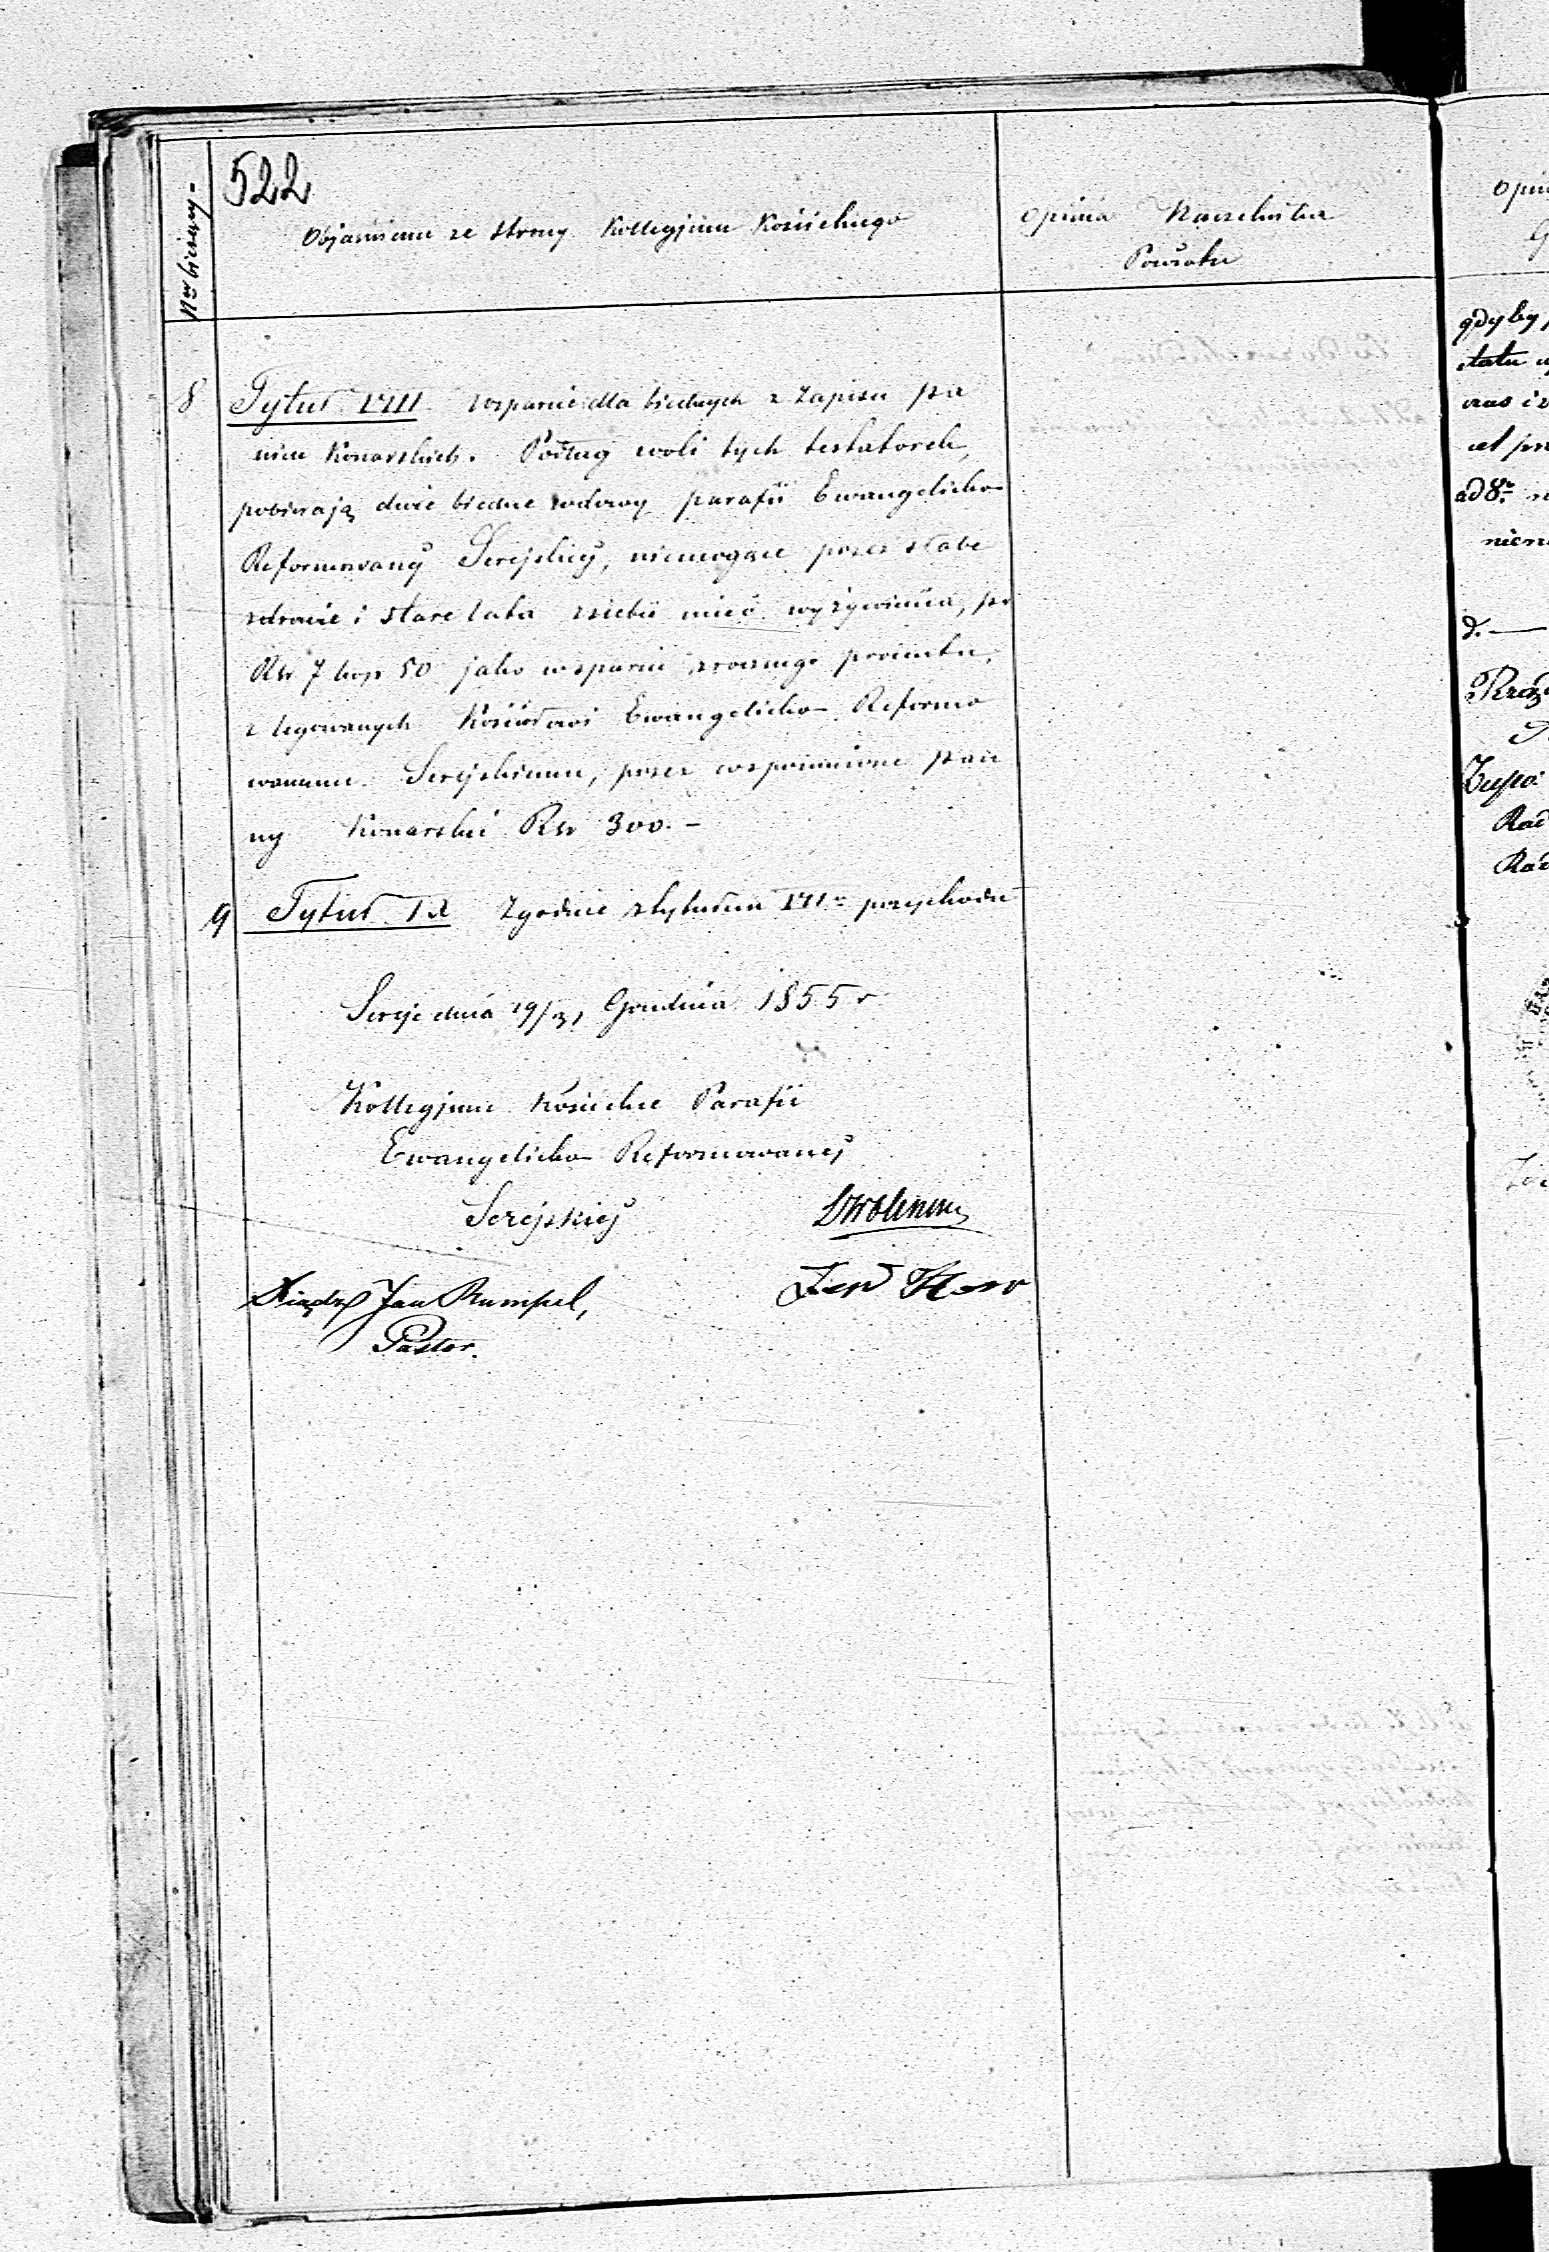 522
Nr bieżący
Objaśnienie ze strony Kollegjum Kościelnego
Opinia Naczelnika
Powiatu
8 Tytuł VIII wsparcie dla biednych z zapisu pa
nien Konarskich. Podług woli tych testatorek,
pobierają dwie biedne wdowy parafii Ewangelicko
Reformowanéj Serejskiéj, niemogące przez słabe
zdrowie i stare lata z siebie mieć wyżywienia, po
Rsr 7 kop 50 jako wsparcie z rocznego procentu,
z legowanych Kościołowi Ewangelicko Reformo
wanemu Serejskiemu, przez wspomnione pan
ny Konarskie Rsr 300.-
9 Tytuł IX Zgodnie z tytułem VII przychodu
Sereje dnia 19/31 Grudnia 1855 r
Kollegjum Kościelne Parafii
Ewangelicko Reformowanéj
Serejskiéj
Xiądz Jan Rumpel,
Pastor.
gdyby
etatu
czas i
cel
ad 8.
d. —
Rad
Rad